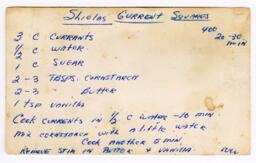 Shields Currant Squares
400
20-30
min
3 C Currants
1/2 C Water
1/2 C Sugar
2-3 Tbsps. Cornstarch
2-3 " Butter
1 tsp Vanilla
Cook currents in 1/2 C water -10 min
Mix cornstarch with a little water
Cook another 5 min
Remove stir in Butter + vanilla